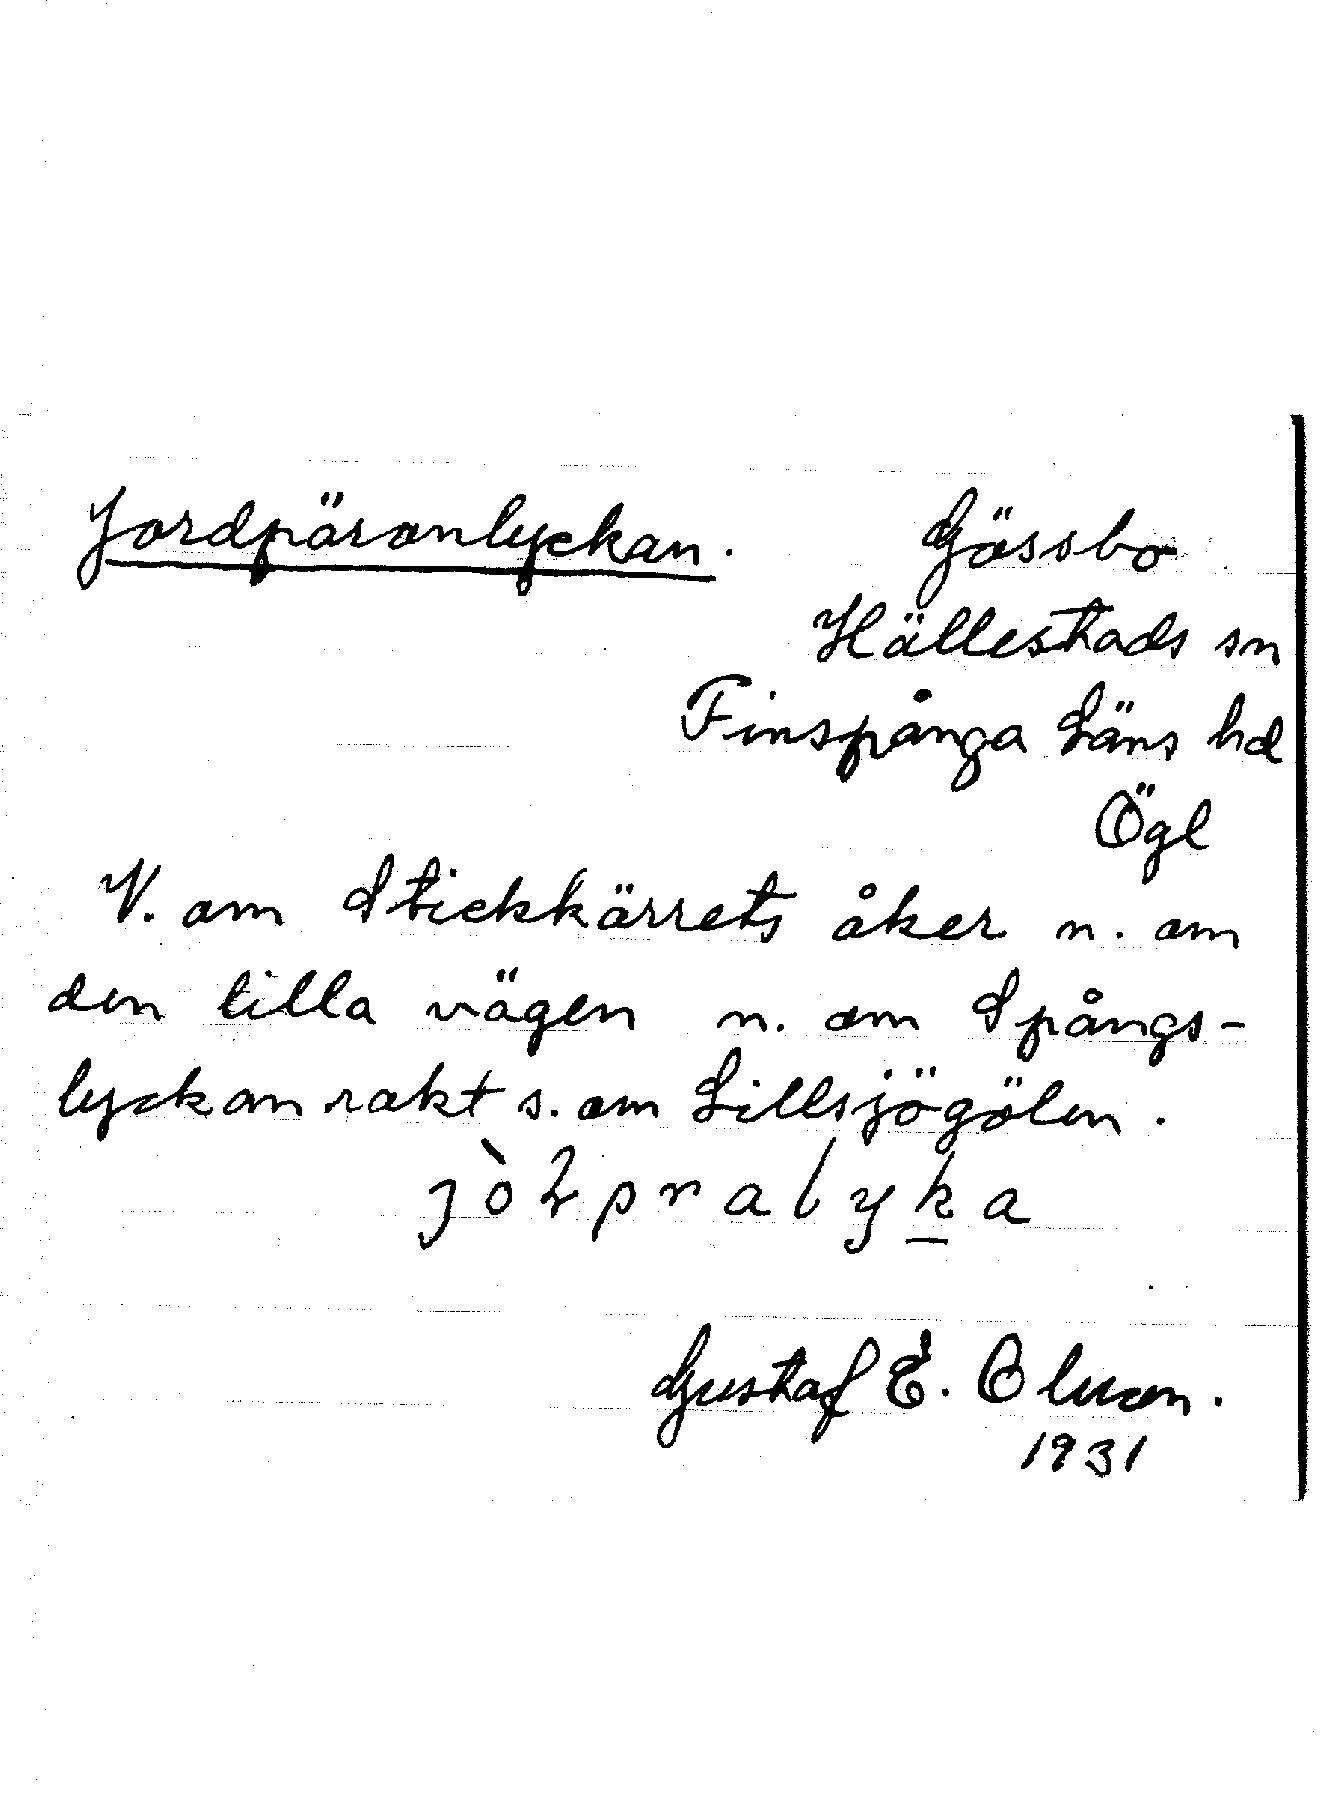 Jordpäronlyckan. Gössbo
Hällestads sn
Finspånga Läns hd
Ögl
V. om Stickkärrets åker n. om
den lilla vägen n. om Spångs-
lyckan rakt s. om Lillsjögölen.
Gustaf E. Olsson.
1931